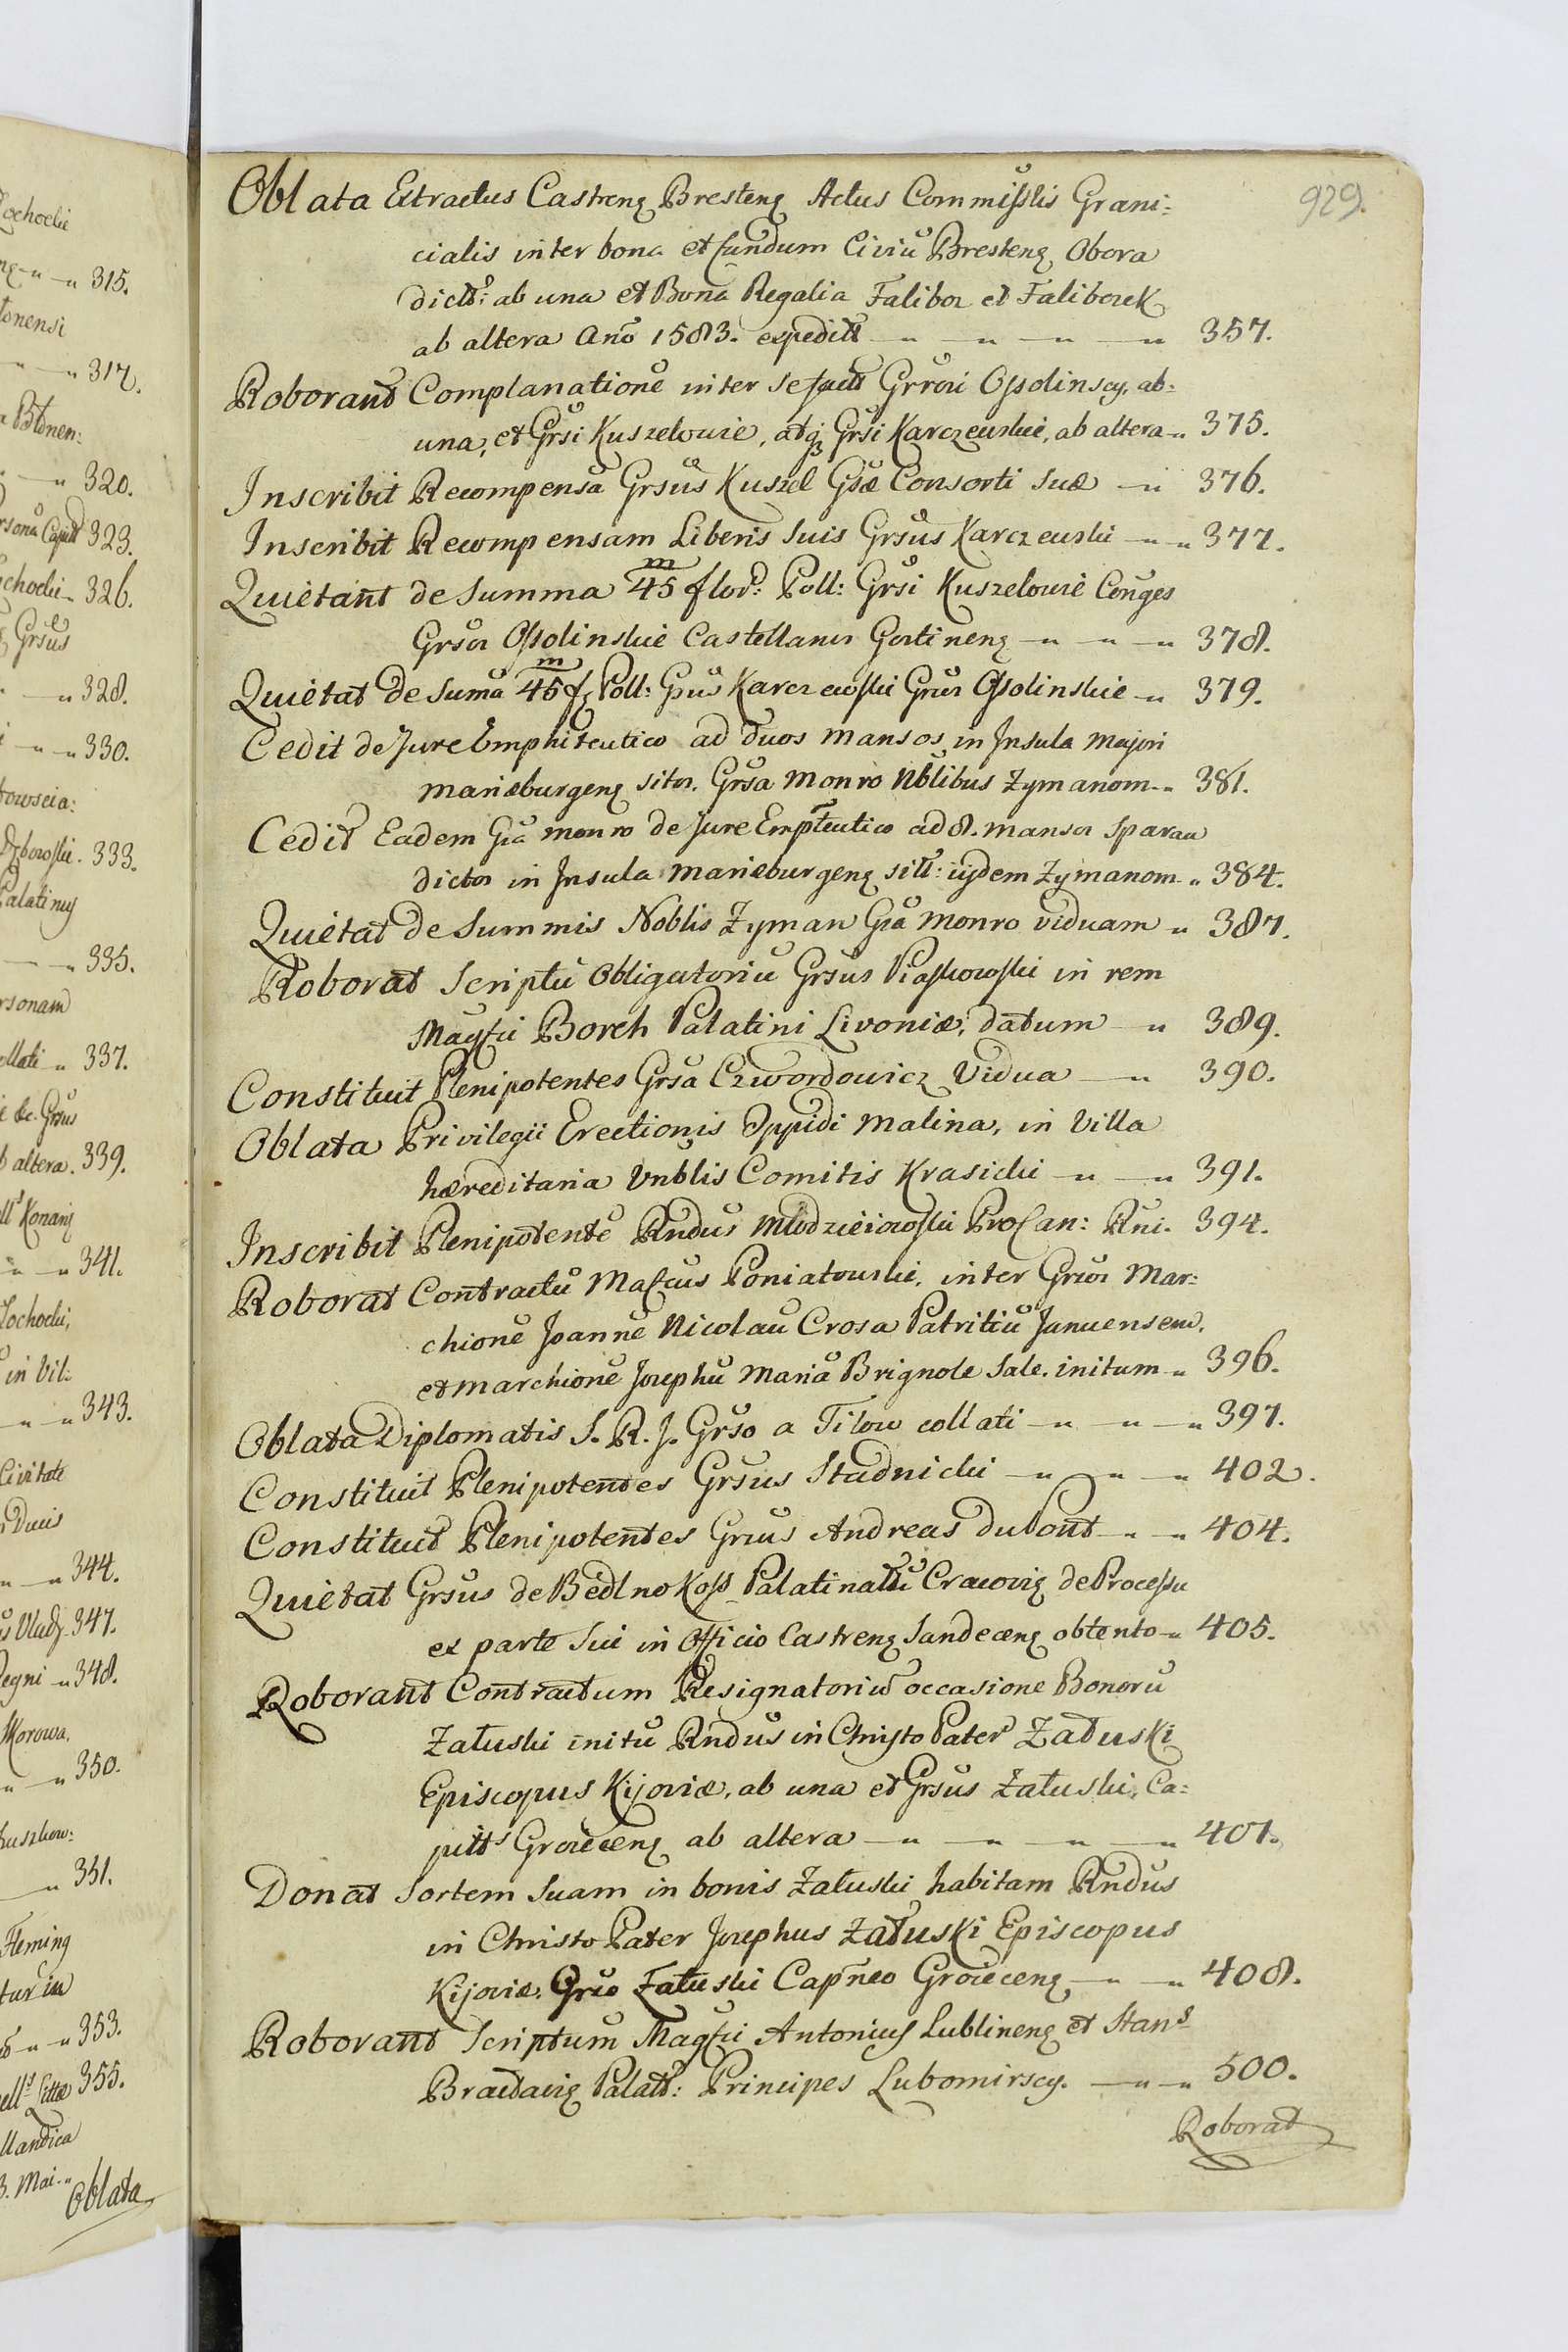 929.
Oblata Extractus Castrenẓ Brestenẓ Actus Commisslis Grani:
cialis inter bona et fundum Civiũ Brestenẓ Obora
dictt: ab una et Bona Regalia Falibor et Faliborek
ab altera Año 1583. expeditt 357.
Roborant Complanationẽ inter se factt Ossolinscy, ab:
una, et Grsi Kuszelowie, atq Grsi Karczewskie, ab altera 375.
Inscribit Recompensã Grsus Kuszel Gsæ Consorti suæ 376.
Inscribit Recompensam Liberis suis Grsus Karczewski 377.
Quietant de Summa 45 m flor: Poll: Grsi Kuszelowie Conges
Grsos Ossolinskie Castellanos Gostinenẓ 378.
Quietat de Sumã 45 m f. Poll: Grsus Karczewski Grsos Ossolinskie 379.
Cedit de Jure Emphiteutico ad duos mansos in Insula Majori
marieburgenẓ sitos. Grsa Monro Nblibus Zymanom 381.
Cedit Eadem Gsa monro de Jure Empteutico ad 8. mansos Sparau
dictos in Insula marieburgenẓ sitt: iijdem Zymanom 384.
Quietat de Summis Noblis Zyman Gsã Monro viduam 387.
Roborat Scriptũ Obligatoriũ Grsus Piaskowski in rem
Magfci Borch Palatini Livoniæ, datum 389.
Constituit Plenipotentes Grsa Czwordowicz Vidua 390.
Oblata Privilegii Erectionis Oppidi Malina, in Villa
hæreditaria Vnblis Comitis Krasicki 391.
Inscribit Plenipotentẽ Rndus Młodzieiowski ProCan: Rni. 394.
Roborat Contractũ Mafcus Poniatowski, inter Grsos Mar:
chionẽ Joannẽ Nicolaũ Crosa Patritiũ Januensem,
et marchionẽ Josephũ Mariã Brignole Sale. initum 396.
Oblata Diplomatis S. R. J. Grso a Tilow collati 397.
Constituit Plenipotentes Grsus Stadnicki 402.
Constituit Plenipotentes Grsus Andreas duPont 404.
Quietat Grsus de Bedlno Koss Palatinattũ Cracovię de Processu
ex parte sui in Officio Castrenẓ Sandecenẓ obtento 405.
Roborant Contractum Resignatoriũ occasione Bonorũ
Załuski initũ Rndus in Christo Pater Załuski
Episcopus Kijoviæ, ab una et Grsus Załuski, Ca:
pitts Groiecenẓ ab altera 407.
Donat Sortem Suam in bonis Załuski habitam Rndus
in Christo Pater Josephus Załuski Episcopus
Kijoviæ. Grso Załuski Capneo Groiecenẓ 408.
Roborant Scriptum Magfci Antonius Lublinenẓ et Stans
Bracłavię Palatt: Principes Lubomirscy. 500.
Roborat
315.
317.
320.
323.
326.
Grsus
328.
330.
333.
Palatinus
335.
337.
altera. 339.
341.
in Vil:
343.
Civitate
Ducis
344.
347.
348.
350.
351.
Fleming
353.
355.
Mai.
Oblata